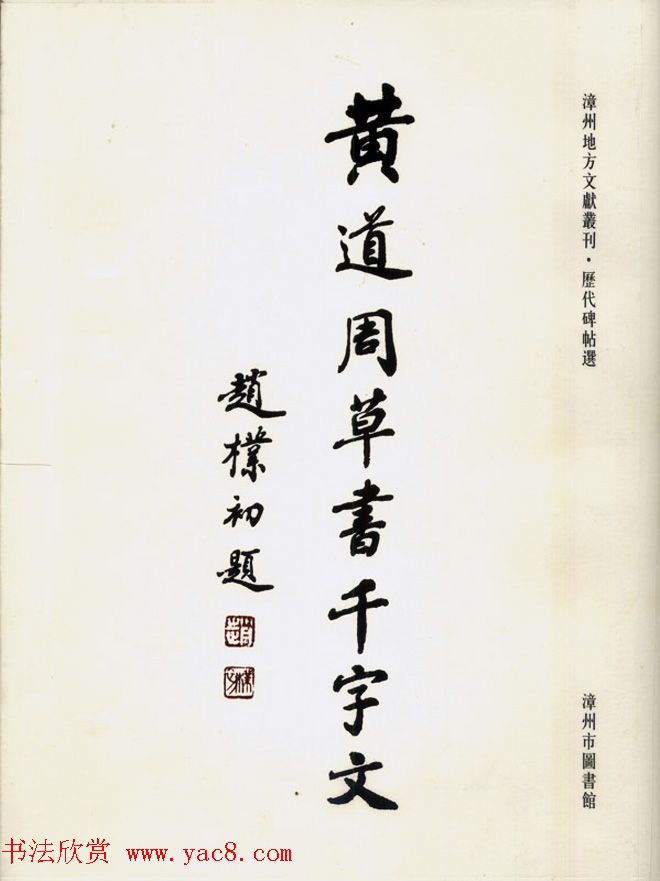 漳州地方文獻叢刊·歷代碑帖選
漳州市圖書館
黄道周草書千字文
趙樸初題
书法欣赏 www.yac8.com